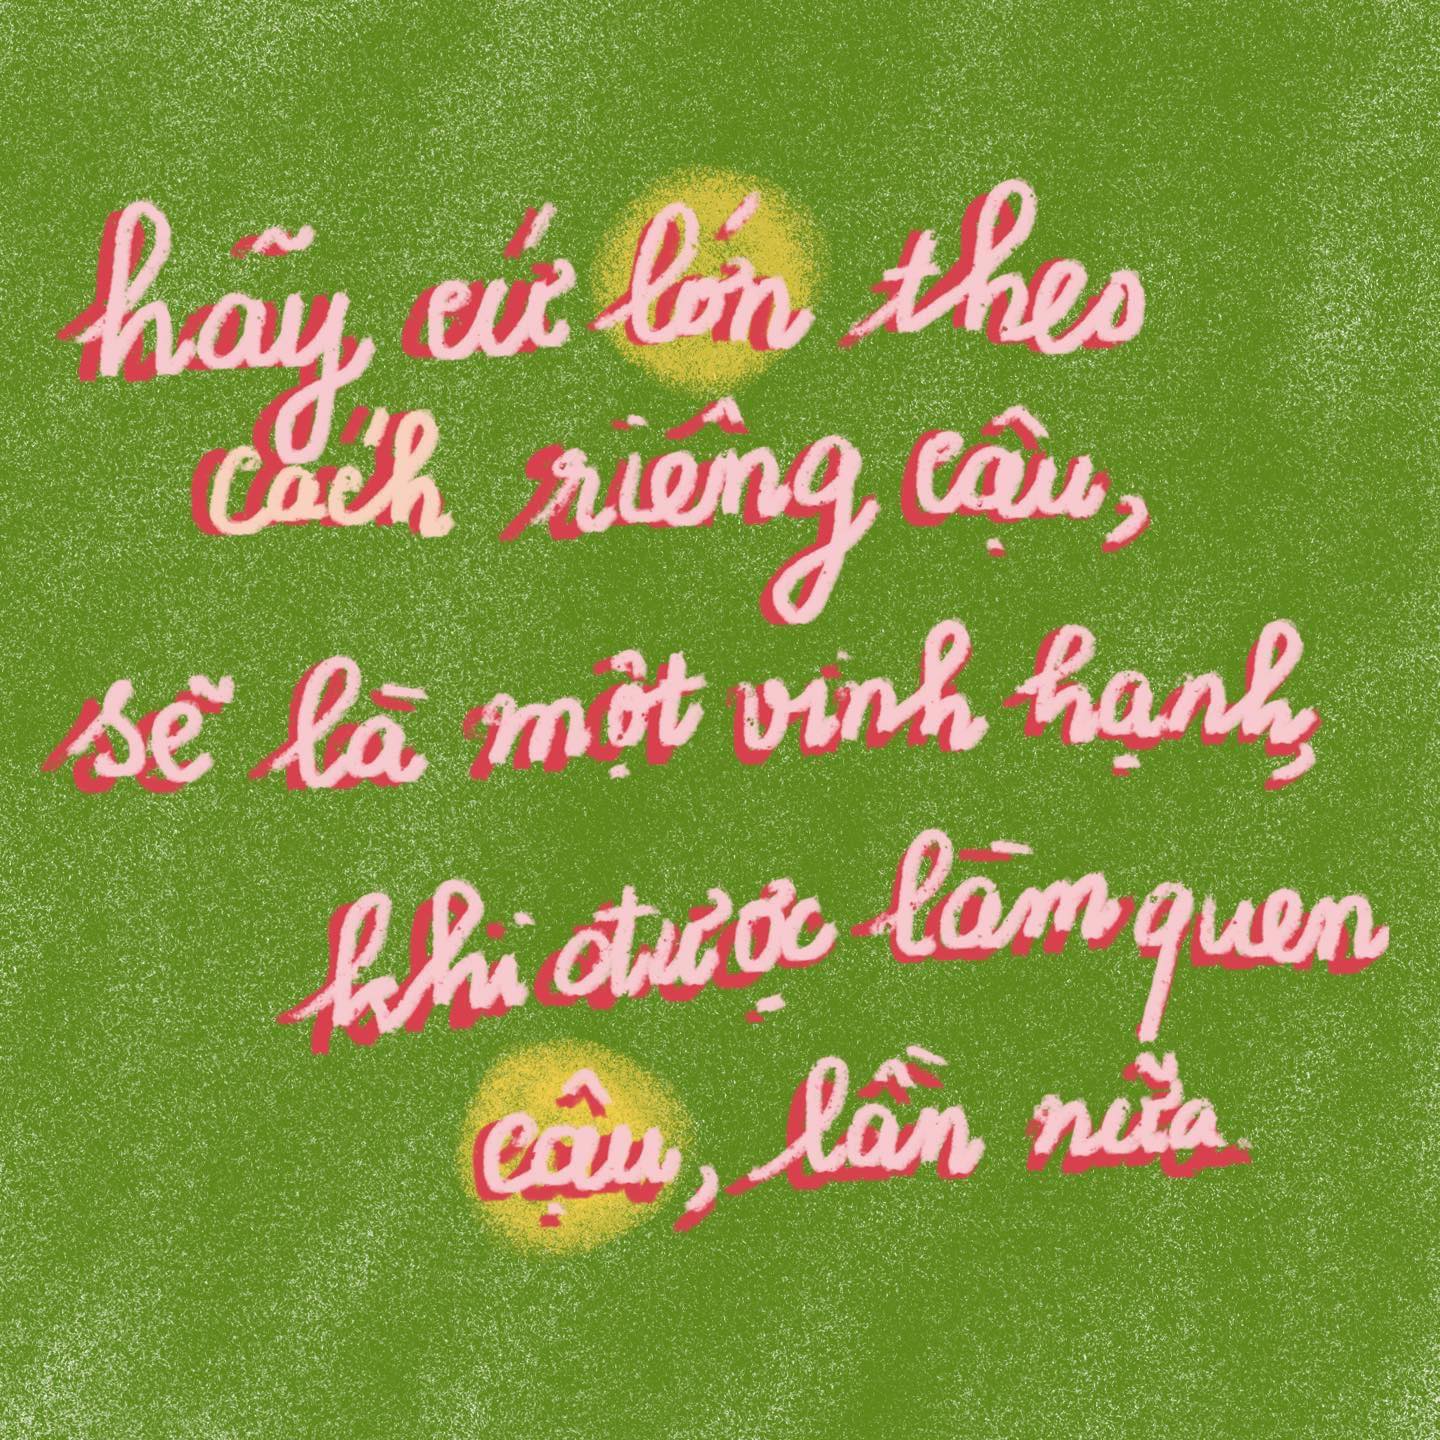 hãy cứ lớn theo
cách riêng cậu,
sẽ là một vinh hạnh,
khi được làm quen
cậu, lần nữa